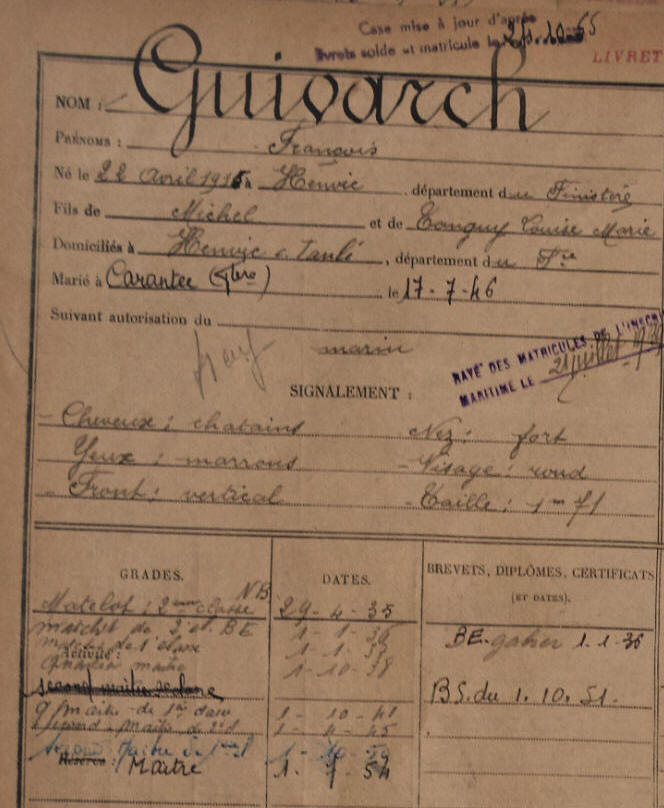 Case mise à jour d'après
livrets solde et matricule le 21.10.55
LIVRET
NOM : Guivarch
PRÉNOMS : François
Né le 22 avril 1915 à Henvic département du Finistère
Fils de Michel et de Tanguy Louise Marie
Domiciliés à Henvic c. Taulé, département du Fre
Marié à Carantec (Fère) le 17-7-46
Suivant autorisation du
marin
RAYÉ DES MATRICULES DE L'INSCR
MARITIME LE 21 juillet
SIGNALEMENT :
Cheveux : chatains Nez : fort
Yeux : marrons Visage : rond
Front : vertical Taille : 1m 71
GRADES. DATES. BREVETS, DIPLÔMES, CERTIFICATS
(ET DATES).
Matelot : 2ème classe NB 29-4-35
matelot de 2e cl. BE 1-1-36 BE gabier 1.1.36
matelot de 1e classe 1-1-37
Activité :
Quartier maître 1-10-38
second maître 2e classe BS. du 1.10.51.
q maître de 1ère classe 1-10-41
Second-maître de 2e cl 1-4-45
second maitre de 1ère cl 1-10-50
Réserve : Maître 1-7-54